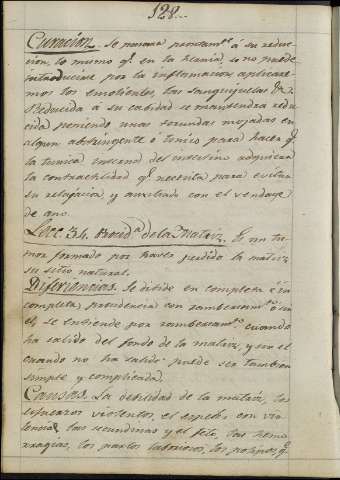 128...
Curacion. Se pasara prontam.te á su reduc
cion, lo mismo q.e en la Hernia, si no puede
introducirse por la inflamacion, aplicare
mos los emolientes, las sanguijuelas &.a
Reducida á su cabidad se mantendra redu
cida poniendo unas torundas mojadas en
algun abstringente ó tonico para hacer q.e
la tunica interna del intestino adquiera
la contractilidad q.e necesita para evitar
su relajacion, y auxiliado con el vendage
de ano.
Lecc. 34. Procid.a de la Matriz. Es un tu
mor formado por haver perdido la matriz
su sitio natural.
Diferiencias. Se dibide en completa é in
completa, procidencia con rambersam.to ó sin
el, se entiende por rambersam.to cuando
ha salido del fondo de la matriz, y sin el
cuando no ha salido puede ser tambien
simple y complicada.
Causas. La debilidad de la matriz, los
esfuerzos violentos el espeler con vio
lencia las secundinas y el feto, las hemo
rragias, los partos laboriosos, los polipos, q.e